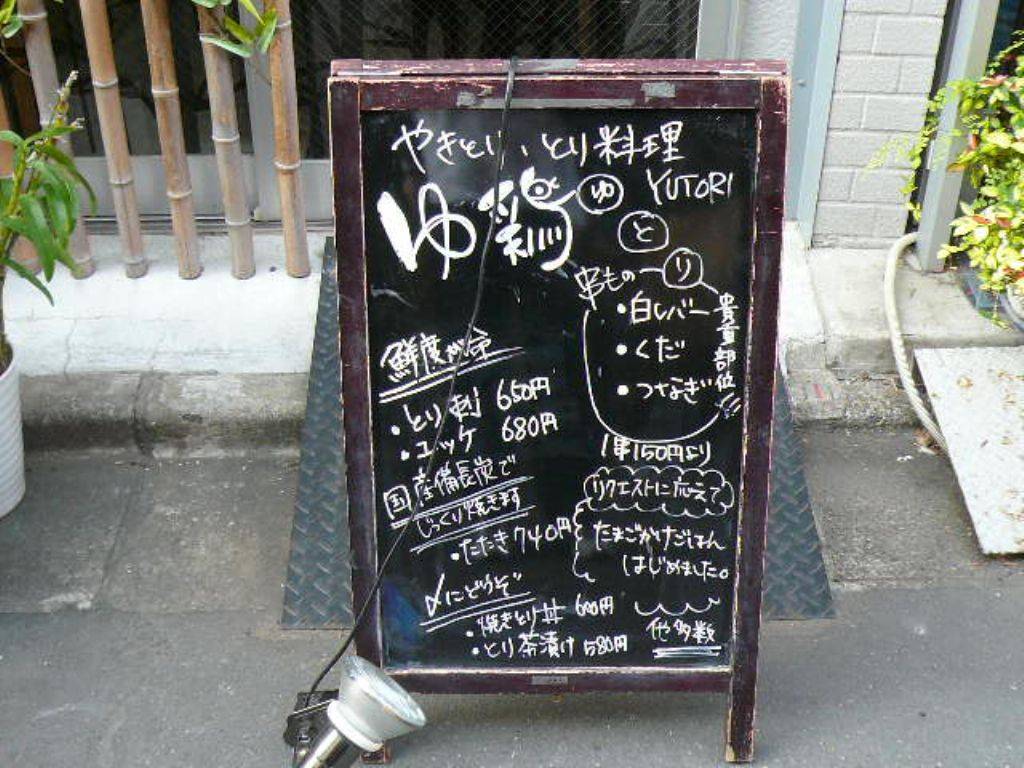 やきとり、とり料理
ゆ鶏
ゆ
と
り
YUTORI
串もの
・白レバー
・くだ
・つなぎ
貴重部位!!
1串150円より
鮮度が命
・とり刺 650円
・ユッケ 680円
国産備長炭で
じっくり焼きます
・たたき 740円
〆にどうぞ
・焼きとり丼 600円
・とり茶漬け 580円
リクエストに応えて
たまごかけごはん
はじめました。
他多数